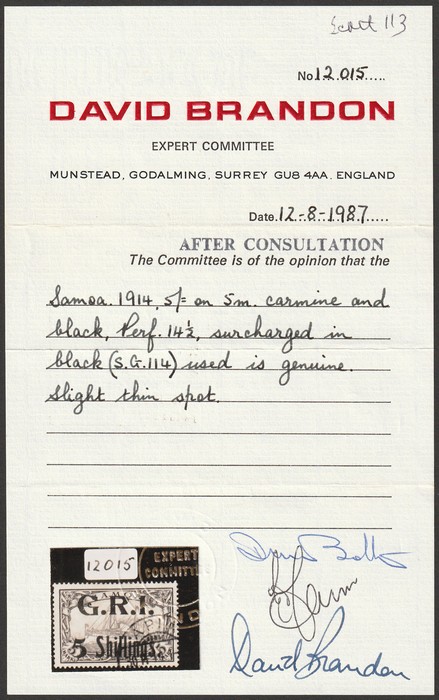 Scott 113
No 12.015.....
DAVID BRANDON
EXPERT COMMITTEE
MUNSTEAD, GODALMING, SURREY GU8 4AA. ENGLAND
Date. 12-8-1987.....
AFTER CONSULTATION
The Committee is of the opinion that the
Samoa. 1914, 5/= on 5m. carmine and
black, Perf. 14½, surcharged in
black (S.G.114) used is genuine.
Slight thin spot.
12015
EXPERT
COMMITTE
G.R.I.
5 Shillings.
David Brandon